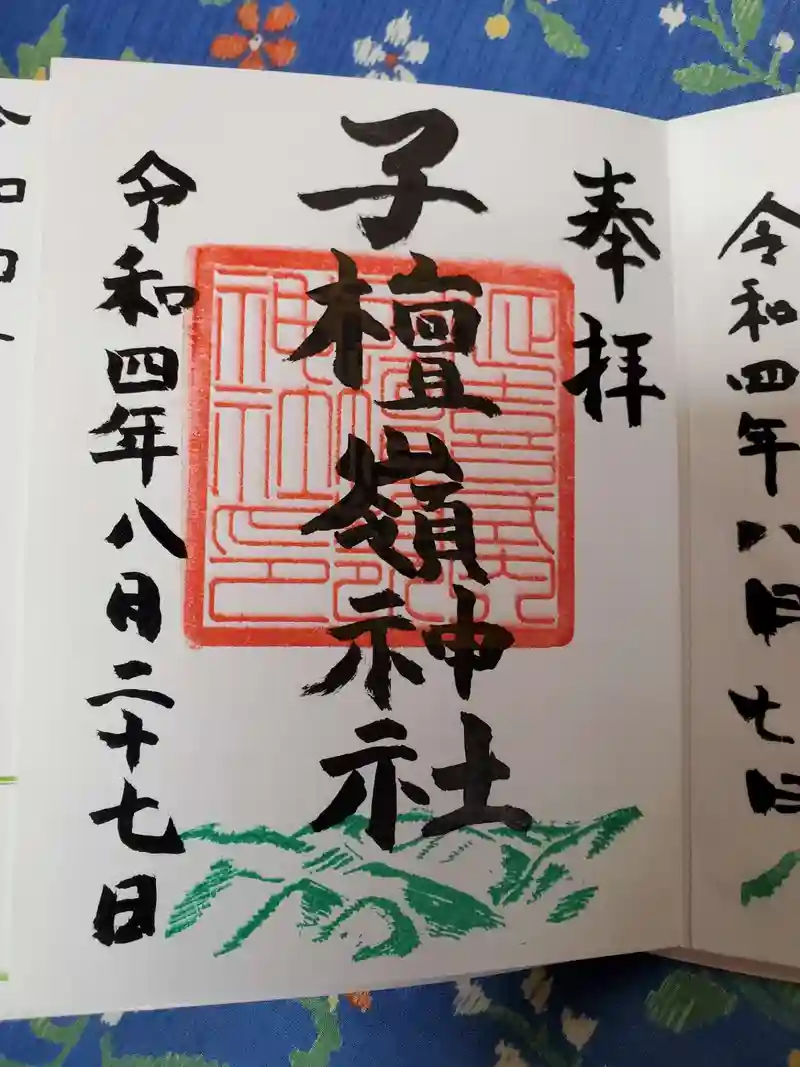 奉拝
子檀嶺神社
令和四年八月二十七日
令和四年八月七日
令和四